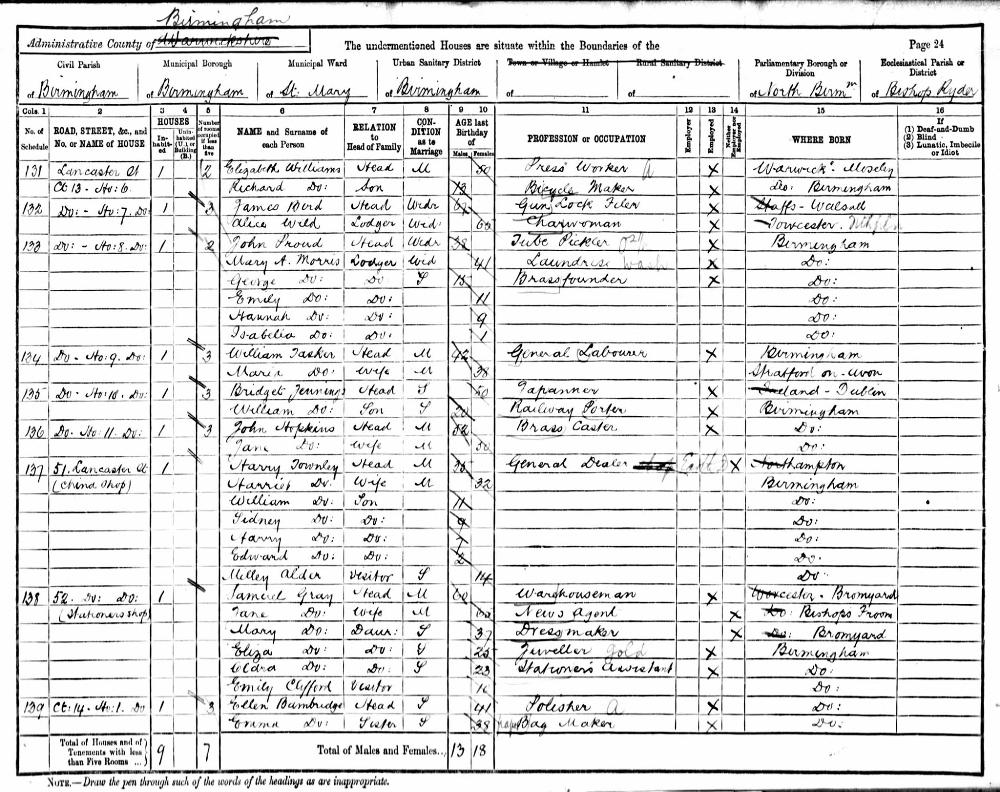 Birmingham
Administrative County of Warwickshire The undermentioned Houses are situate within the Boundaries of the Page 24
Civil Parish Municipal Borough Municipal Ward Urban Sanitary District Town or Village or Hamlet Rural Sanitary District Parliamentary Borough or Division Ecclesiastical Parish or District
of Birmingham of Birmingham of St. Mary of Birmingham of of of North Birmm of Bishop Ryder
Cols. 1 2 3 4 5 6 7 8 9 10 11 12 13 14 15 16
No. of Schedule ROAD, STREET, &c., and No. or NAME of HOUSE HOUSES Inhabited Uninhabited (U.) or Building (B.) Number of rooms occupied if less than five NAME and Surname of each Person RELATION to Head of Family CONDITION as to Marriage AGE last Birthday of Males Females PROFESSION or OCCUPATION Employer Employed Neither Employer nor Employed WHERE BORN If (1) Deaf-and-Dumb (2) Blind (3) Lunatic, Imbecile or Idiot
131 Lancaster St 1 2 Elizabeth Williams Head M 50 Press Worker A X Warwick: Moseley
Ct 13 - No: 6 Richard Do: Son 13 Bicycle Maker X Do: Birmingham
132 Do: - No: 7. Do: 1 3 James Bird Head Widr Gun Lock Filer X Staffs - Walsall
Alice Wild Lodger Wid: 60 Charwoman X Towcester.
133 Do: - No: 8. Do: 1 2 John Proud Head Widr 38 Tube Pickler X Birmingham
Mary A. Morris Lodger Wid 41 Laundress Wash X Do:
George Do: Do S 15 Brassfounder X Do:
Emily Do: Do: 11 Do:
Hannah Do: Do: 9 Do:
Isabella Do: Do: 1 Do:
134 Do - No: 9. Do: 1 3 William Tasker Head M 42 General Labourer X Birmingham
Maria Do: Wife M 38 Stratford on-Avon
135 Do - No: 10. Do: 1 3 Bridget Jennings Head S 50 Japanner X Ireland - Dublin
William Do: Son S 20 Railway Porter X Birmingham
136 Do. No: 11. Do: 1 3 John Hopkins Head M 52 Brass Caster X Do:
Jane Do: Wife M 50 Do:
137 51. Lancaster St 1 Harry Townley Head M General Dealer X Northampton
(China Shop) Harriet Do: Wife M 32 Birmingham
William Do: Son 11 Do:
Sidney Do: Do: 9 Do:
Harry Do: Do: 7 Do:
Edward Do: Do: 2 Do:
Milley Alder Visitor S 14 Do:
138 52. Do: Do: 1 Samuel Gray Head M 60 Warehouseman X Worcester - Bromyard
(Stationers shop) Jane Do: Wife M 60 News Agent X Do: Bishops Froom
Mary Do: Daur: S 37 Dressmaker X Do: Bromyard
Eliza Do: Do: S 25 Jeweller Gold X Birmingham
Clara Do: Do: S 23 Stationers Assistant X Do:
Emily Clifford Visitor Do:
139 Ct: 14 - No: 1. Do 1 3 Ellen Bambridge Head S 41 Polisher A X Do:
Emma Do: Sister S 38 Paper Bag Maker X Do:
Total of Houses and of Tenements with less than Five Rooms ... 9 7 Total of Males and Females... 13 18
NOTE.—Draw the pen through such of the words of the headings as are inappropriate.